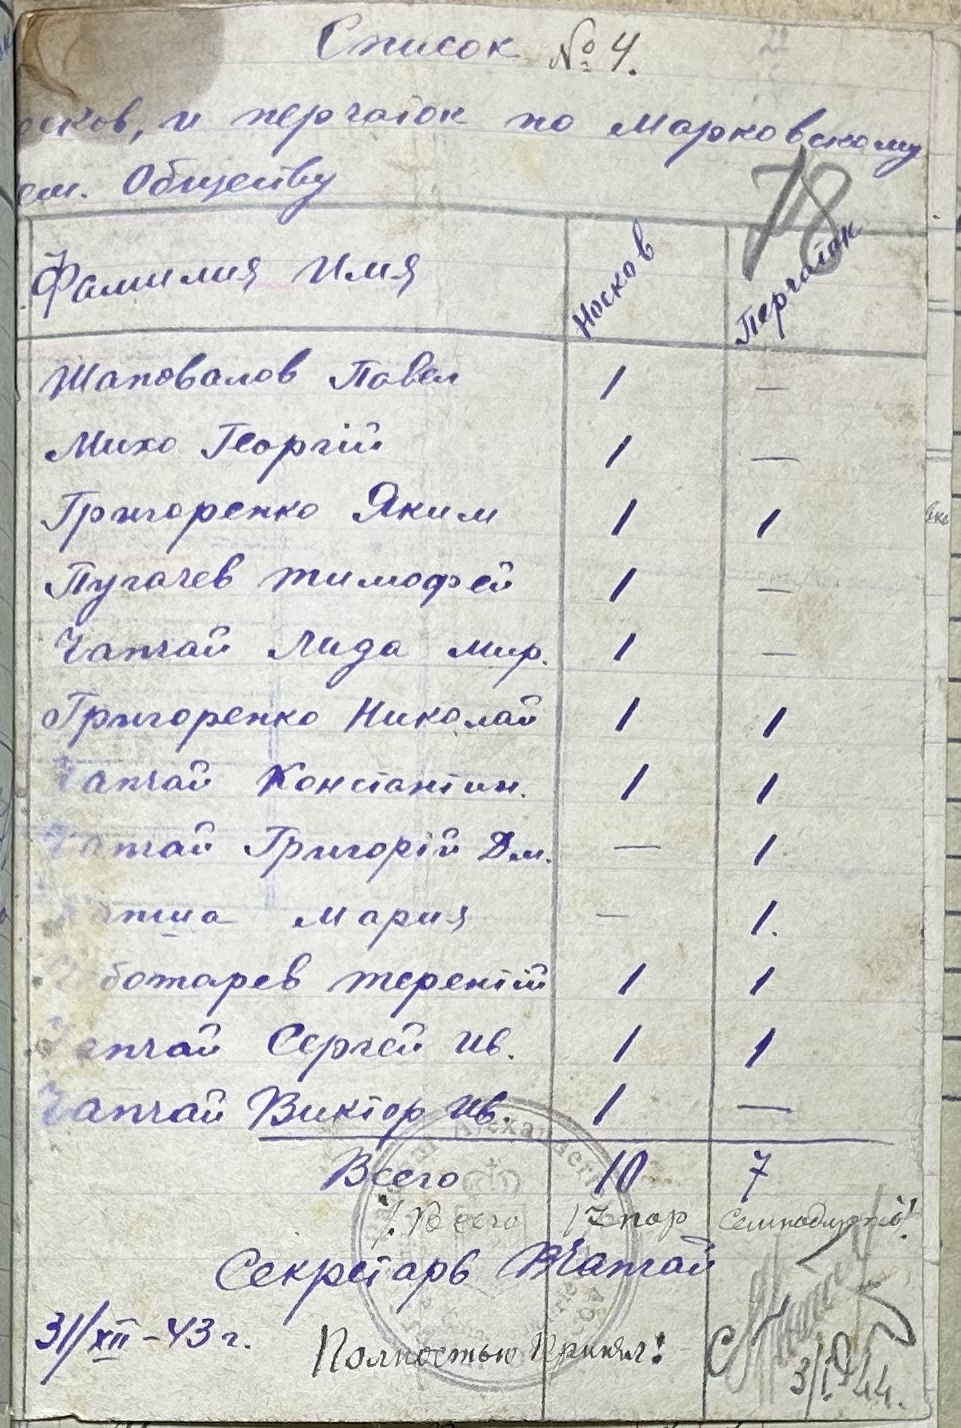 Список № 4.
78
осков, и перчаток по Марковскому
ем. Обществу
Фамилия Имя Носков Перчаток
Шаповалов Павел 1 —
Михо Георгій 1 —
Григоренко Яким 1 1
Пугачев Тимофей 1 —
Чапчай Лида Мир. 1 —
Григоренко Николай 1 1
Чапчай Константин. 1 1
Чапчай Григорій Дм. — 1
Мария — 1.
ботарев Терентій 1 1
Чапчай Сергей Ив. 1 1
Чапчай Виктор Ив. 1 —
Всего 10 7
Всего 17 пар
Секретарь Чапчай
31/XII-43 г. Полностью принял!
3/I 44.